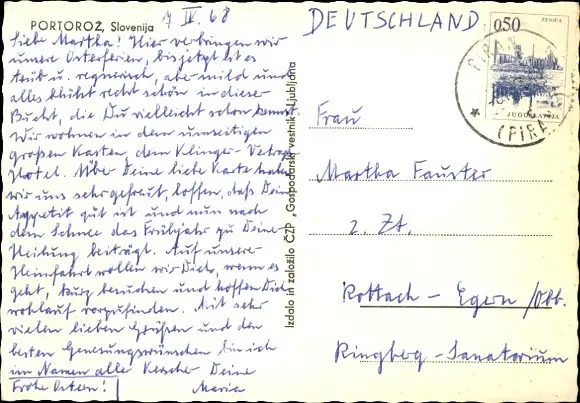 PORTOROŽ, Slovenija
7 IV. 68
Liebe Martha! Hier verbringen wir
unsere Osterferien, bis jetzt ist es
trüb u. regnerisch, aber mild und
alles blüht recht schön in dieser
Bucht, die Du vielleicht schon kennst.
Wir wohnen in dem umseitigen
großen Kasten, dem
Hotel. Über Deine liebe Karte haben
wir uns sehr gefreut, hoffen, daß Dein
Appetit gut ist und nun nach
dem Schnee das Frühjahr zu Deiner
Heilung beiträgt. Auf unserer
Heimfahrt wollen wir Dich, wenn es
geht, kurz besuchen und hoffen Dich
wohlauf vorzufinden. Mit sehr
vielen lieben Grüßen und den
besten Genesungswünschen bin ich
im Namen aller Deine
Frohe Ostern! Maria
Izdalo in založilo ČZP „Gospodarski vestnik" Ljubljana
DEUTSCHLAND
0,50
ZENICA
JUGOSLAVIJA
PIRAN
(PIRA
Frau
Martha Fauster
z. Zt.
Rottach - Egern / Obb.
Ringberg - Sanatorium